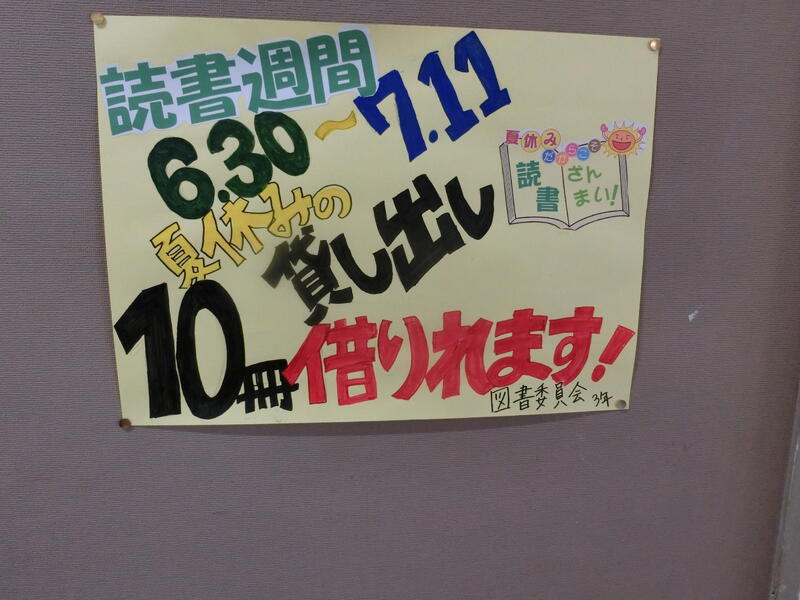 読書週間
6.30～7.11
夏休みの
貸し出し
10冊借りれます!
夏休み
だからこそ
読書
ざんまい!
図書委員会 3年